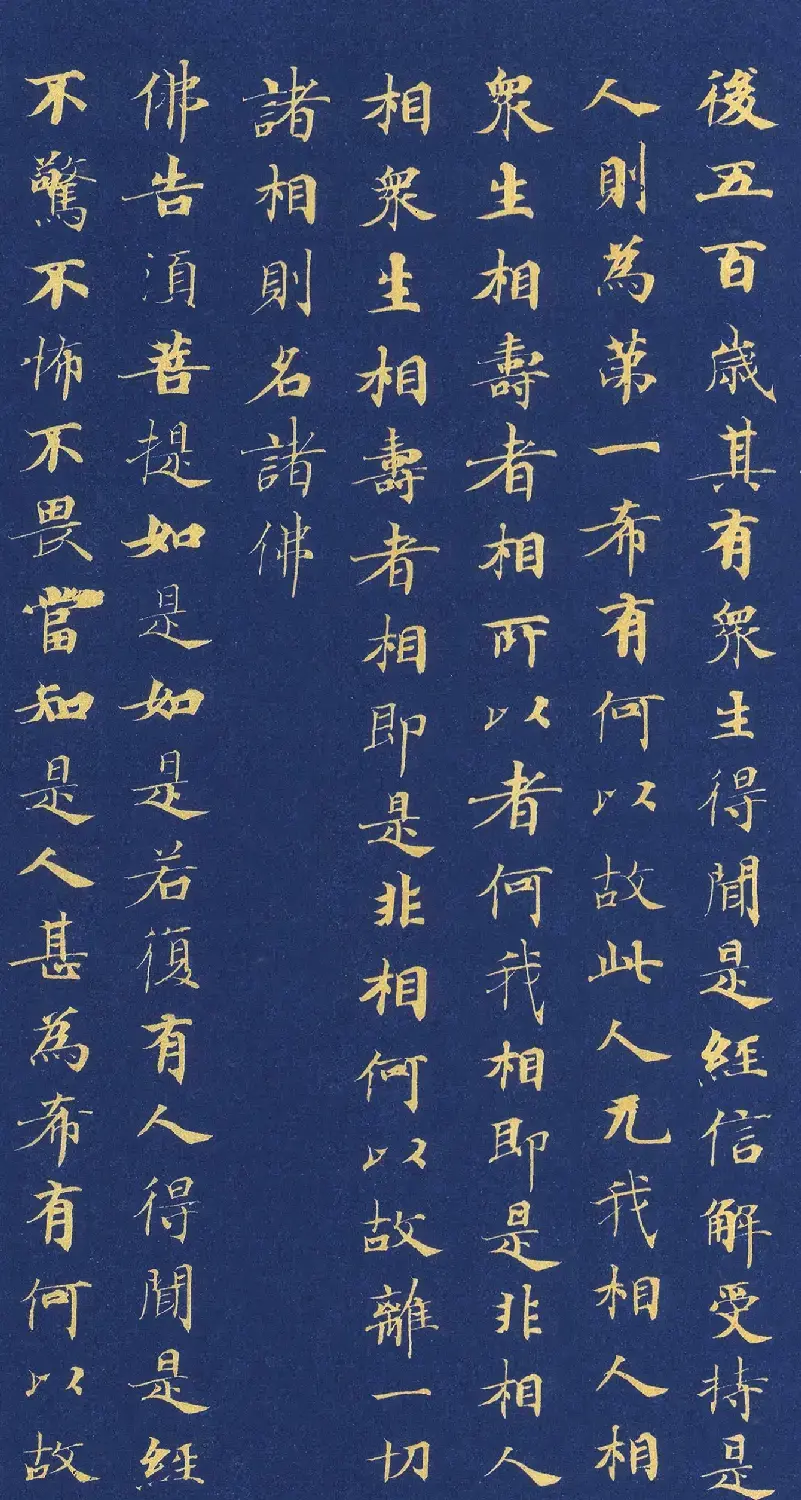 後五百歲其有衆生得聞是經信解受持是
人則為第一希有何以故此人无我相人相
衆生相壽者相所以者何我相即是非相人
相衆生相壽者相即是非相何以故離一切
諸相則名諸佛
佛告須菩提如是如是若復有人得聞是經
不驚不怖不畏當知是人甚為希有何以故